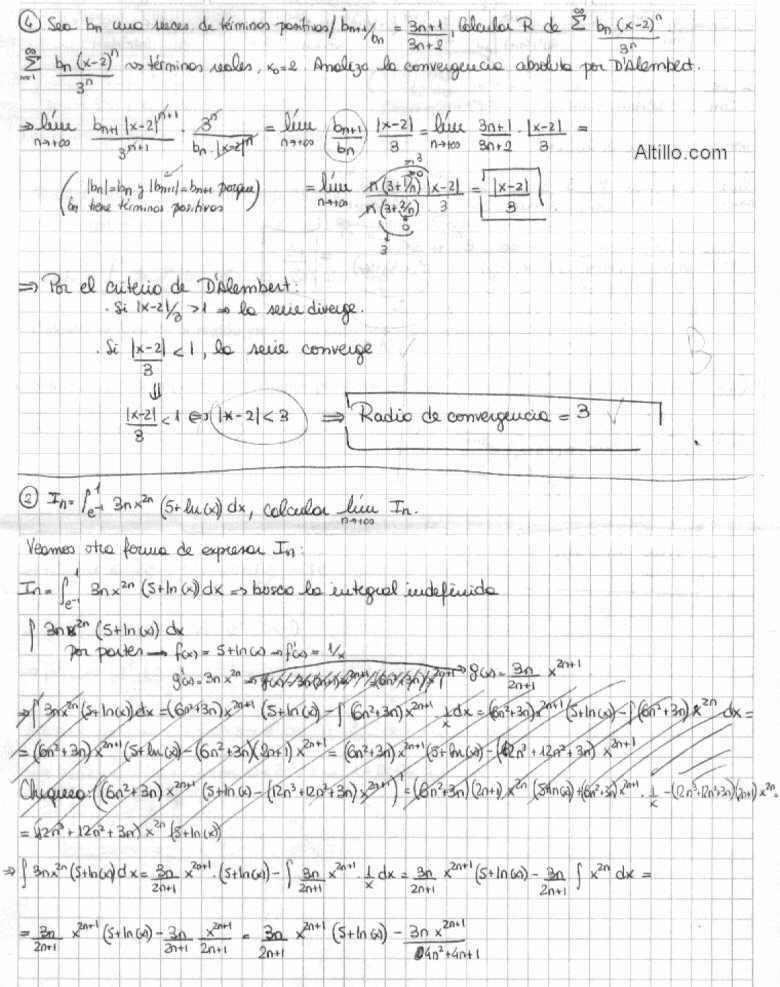 ④ Sea bn una suces de términos positivos / bn+1/bn = 3n+1/3n+2, Calcular R de ∞Σ bn(x-2)^n/3^n
∞Σn=1 bn(x-2)^n/3^n ⇝ términos reales, x₀=2. Analizo la convergencia absoluta por D'Alembert.
⇒ lím n→+∞ bn+1|x-2|^n+1/3^n+1 · 3^n/bn·|x-2|^n = lím n→+∞ bn+1/bn |x-2|/3 = lím n→+∞ 3n+1/3n+2 · |x-2|/3 =
Altillo.com
(|bn|=bn y |bn+1|=bn+1 porque bn tiene términos positivos) = lím n→+∞ n(3+1/n)/n(3+2/n) |x-2|/3 = |x-2|/3
⇒ Por el criterio de D'Alembert:
· Si |x-2|/3 >1 ⇒ la serie diverge.
B
· Si |x-2|/3 < 1, la serie converge ✓
⇓
|x-2|/3 < 1 ⇔ |x-2| < 3 ⇒ Radio de convergencia = 3 ✓
② In = ∫e⁻¹^1 3nx^2n (5+ln(x)) dx, calcular lím n→+∞ In.
Veamos otra forma de expresar In:
In = ∫e⁻¹^1 3nx^2n (5+ln(x)) dx ⇒ busco la integral indefinida
∫ 3nx^2n (5+ln(x)) dx
por partes → f(x) = 5+ln(x) → f'(x) = 1/x
g'(x) = 3nx^2n → g(x) = 3n/2n+1 x^2n+1
⇒ ∫ 3nx^2n (5+ln(x)) dx = (6n²+3n)x^2n+1 (5+ln(x)) - ∫ (6n²+3n)x^2n+1 · 1/x dx = (6n²+3n)x^2n+1 (5+ln(x)) - ∫ (6n²+3n) x^2n dx =
= (6n²+3n)x^2n+1 (5+ln(x)) - (6n²+3n)(2n+1) x^2n+1 = (6n²+3n)x^2n+1 (5+ln(x)) - (12n³+12n²+3n) x^2n+1
Chequeo: ((6n²+3n)x^2n+1 (5+ln(x)) - (12n³+12n²+3n)x^2n+1)' = (6n²+3n)(2n+1)x^2n (5+ln(x)) + (6n²+3n)x^2n+1 · 1/x - (12n³+12n²+3n)(2n+1) x^2n
= (12n³+12n²+3n) x^2n (5+ln(x))
⇒ ∫ 3nx^2n (5+ln(x)) dx = 3n/2n+1 x^2n+1 · (5+ln(x)) - ∫ 3n/2n+1 x^2n+1 · 1/x dx = 3n/2n+1 x^2n+1 (5+ln(x)) - 3n/2n+1 ∫ x^2n dx =
= 3n/2n+1 x^2n+1 (5+ln(x)) - 3n/2n+1 x^2n+1/2n+1 = 3n/2n+1 x^2n+1 (5+ln(x)) - 3n x^2n+1/4n²+4n+1